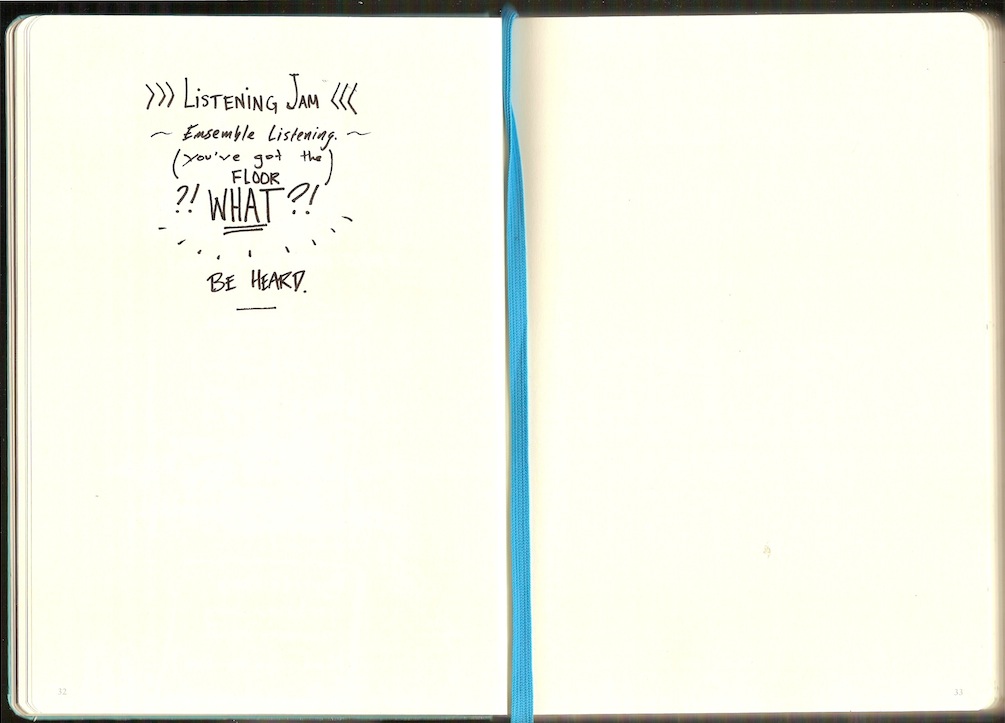 >>> LISTENING JAM <<<
~ Ensemble Listening. ~
(you've got the
FLOOR)
?! WHAT ?!
BE HEARD.
32
33